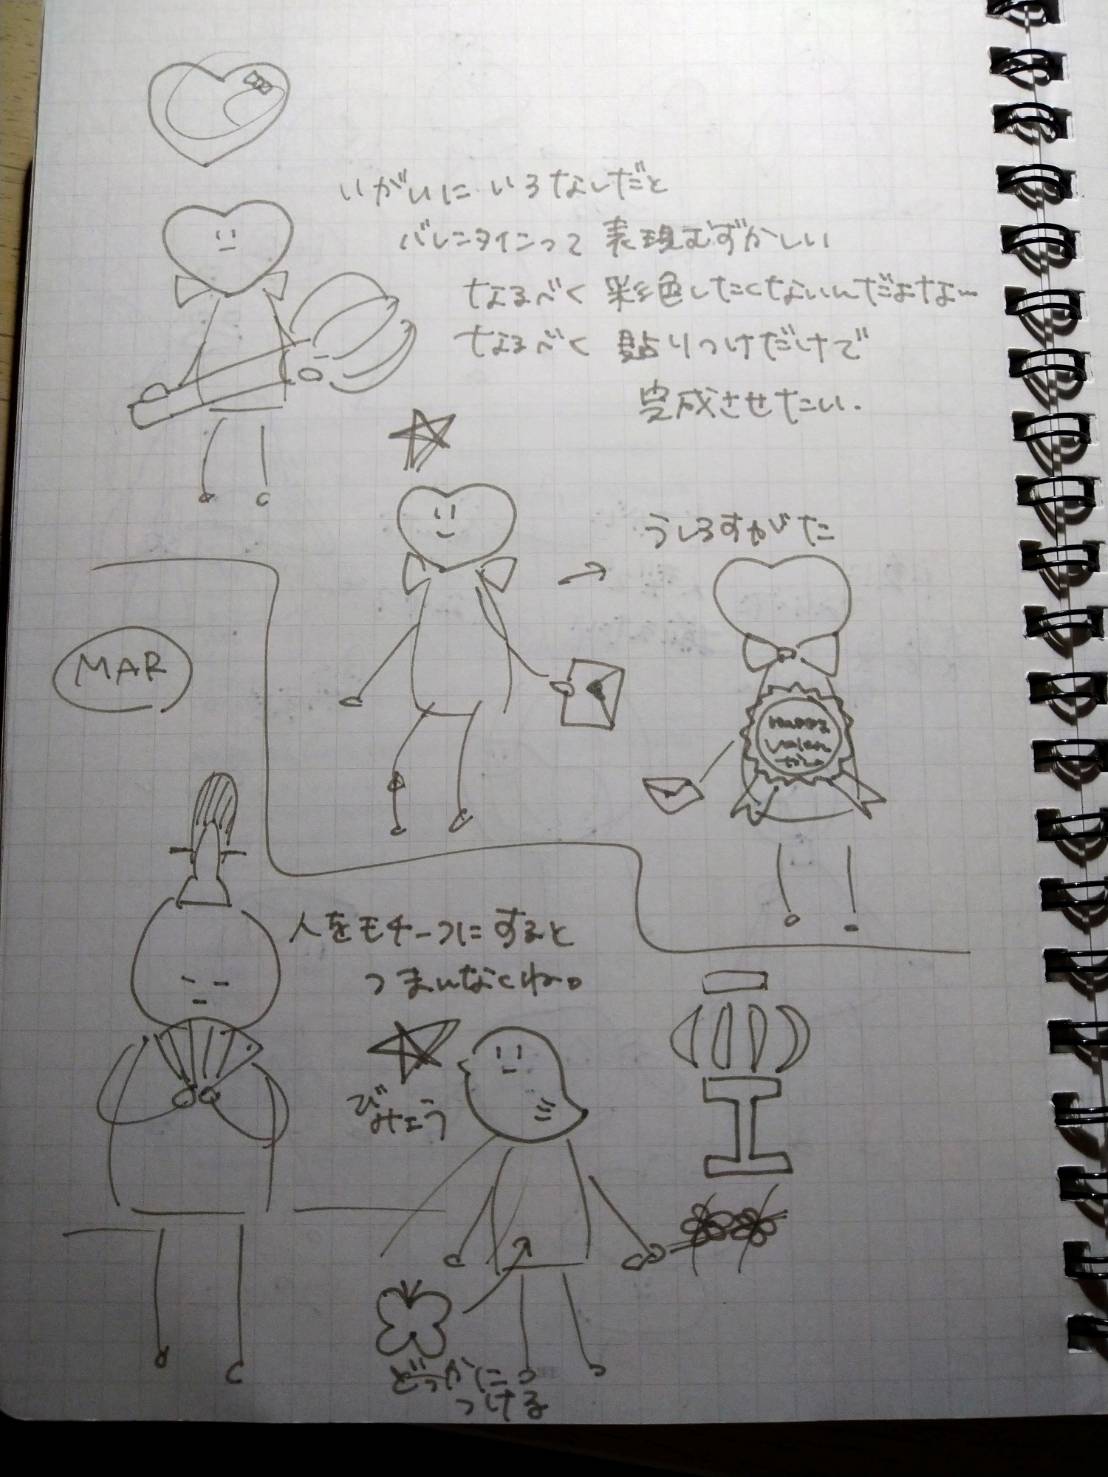 いがいに いろなしだと
バレンタインって 表現むずかしい
なるべく 彩色したくないんだよなー
なるべく 貼りつけだけで
完成させたい.
うしろすがた
Happy
Valen
tine
MAR
人をモチーフにすると
つまんなくね。
びみょう
どっかに
つける